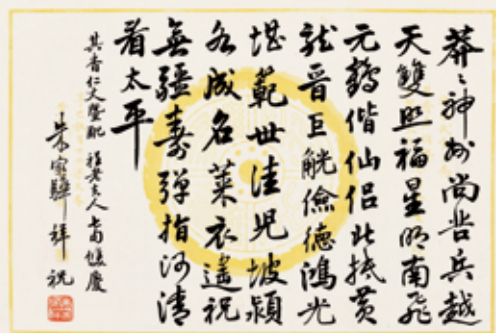 莽莽神州尚苦兵越
天雙照福星明南飛
元鶴偕仙侶北抵黄
龍晉巨觥儉德鴻光
堪範世佳兒坡潁
各成名萊衣遙祝
無疆壽彈指河清
看太平
其香仁丈暨配 夫人 雙慶
朱家驊拜祝